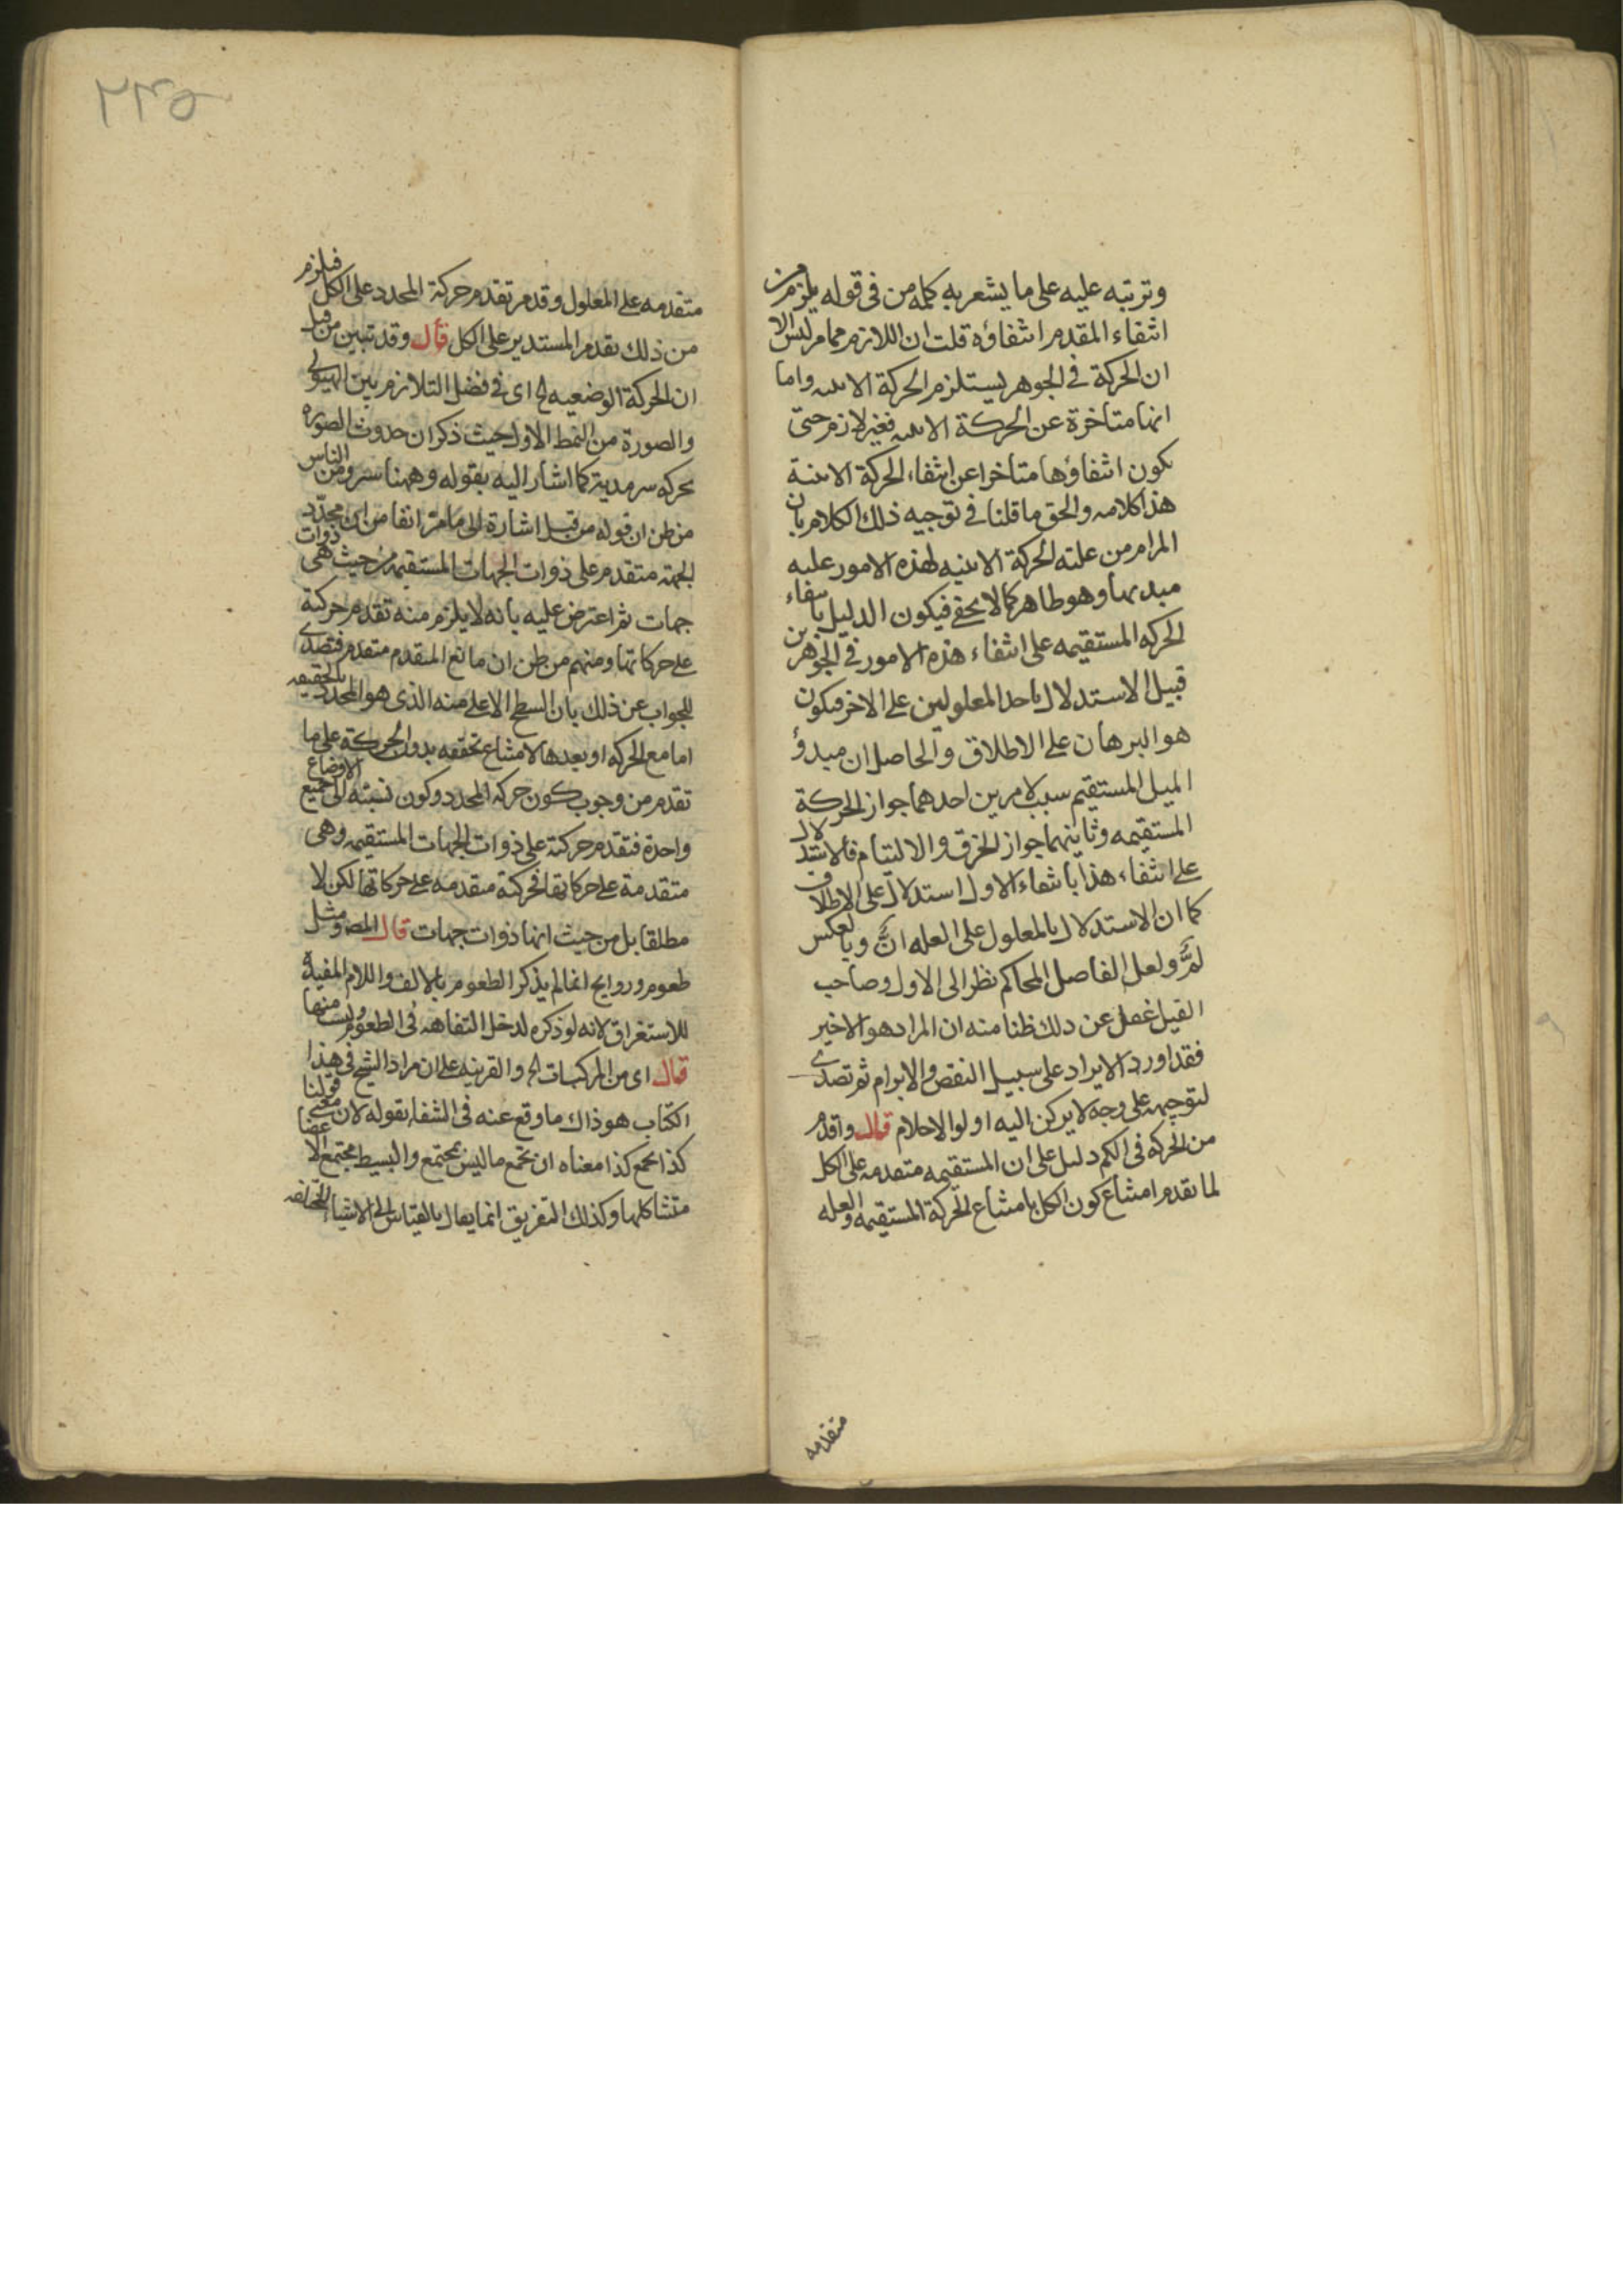 وترتبه عليه على ما يشعر به كلمه من في قوله يلزم من
انتفاء المقدم انتفاؤه قلت ان اللازم مما مر ليس الا
ان الحركة في الجوهر يستلزم الحركة الاينيه واما
انها متاخرة عن الحركة الاينيه فغير لازم حتى
يكون انتفاؤها متاخرا عن انتفاء الحركة الاينية
هذا كلامه والحق ما قلنا في توجيه ذلك الكلام بان
المرام من علته الحركة الاينيه لهذه الامور عليه
مبدئها وهو ظاهر كما لا يخفى فيكون الدليل بانتفاء
الحركه المستقيمه على انتفاء هذه الامور في الجوهر من
قبيل الاستدلال باحد المعلولين على الاخر فيكون
هو البرهان على الاطلاق والحاصل ان مبدؤ
الميل المستقيم سبب لامرين احدهما جواز الحركة
المستقيمه وثانيهما جواز الخرق والالتيام فالاستدلال
على انتفاء هذا بانتفاء الاول استدلال على الاطلاق
كما ان الاستدلال بالمعلول على العله انّ وبالعكس
لمّ ولعل الفاضل المحاكم نظر الى الاول وصاحب
القيل غفل عن ذلك ظنا منه ان المراد هو الاخير
فقد اورد الايراد على سبيل النقض والابرام ثم تصدى
لتوجيهه على وجه لا يركن اليه اولوا الاحلام قال واقدم
من الحركه في الكم دليل على ان المستقيمه متقدمه على الكل
لما تقدم امتناع كون الكل بامتناع الحركة المستقيمه والعله
متقدمه
٢٣٥
متقدمه على المعلول وقد مر تقدم حركة المحدد على الكل فيلزم
من ذلك تقدم المستدير على الكل قال وقد تبين من قبل
ان الحركة الوضعيه الخ اى في فصل التلازم بين الهيولى
والصورة من النمط الاول حيث ذكر ان حدوث الصوره
بحركه سرمدية كما اشار اليه بقوله وههنا سر ومن الناس
من ظن ان قوله من قبل اشارة الى ما مر انفا من ان محدد
الجهة متقدم على ذوات الجهات المستقيمه من حيث هى ذوات
جهات ثم اعترض عليه بانه لا يلزم منه تقدم حركته
على حركاتها ومنهم من ظن ان ما نع المتقدم متقدم فتصدى
للجواب عن ذلك بان السطح الاعلى منه الذى هو المحدد بالحقيقه
اما مع الحركه او بعدها لامتناع تحققه بدون الحركة على ما
تقدم من وجوب كون حركه المحدد وكون نسبته الى جميع الاوضاع
واحدة فتقدم حركته على ذوات الجهات المستقيمه وهى
متقدمة على حركاتها فحركته متقدمه على حركاتها لكن لا
مطلقا بل من حيث انها ذوات جهات قال المص ومثل
طعوم وروايح انما لم يذكر الطعوم بالالف واللام المفيدة
للاستغراق لانه لو ذكره لدخل التفاهه في الطعوم وليست منها
قال اى من المركبات الخ والقرينه على ان مراد الشيخ في هذا
الكتاب هو ذاك ما وقع عنه في الشفاء بقوله لان معنى قولنا
كذا يجمع كذا معناه ان يجمع ما ليس بمجتمع والبسيط مجتمع الاعضا
متشاكلها وكذلك التفريق انما يقال بالقياس الى الاشياء المختلفه